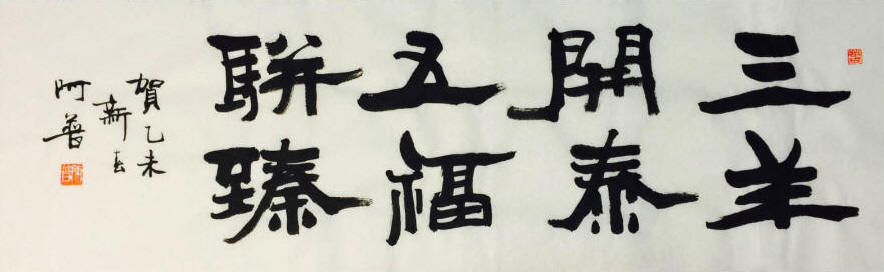 三羊
開泰
五福
駢臻
賀乙未
新春
阿普